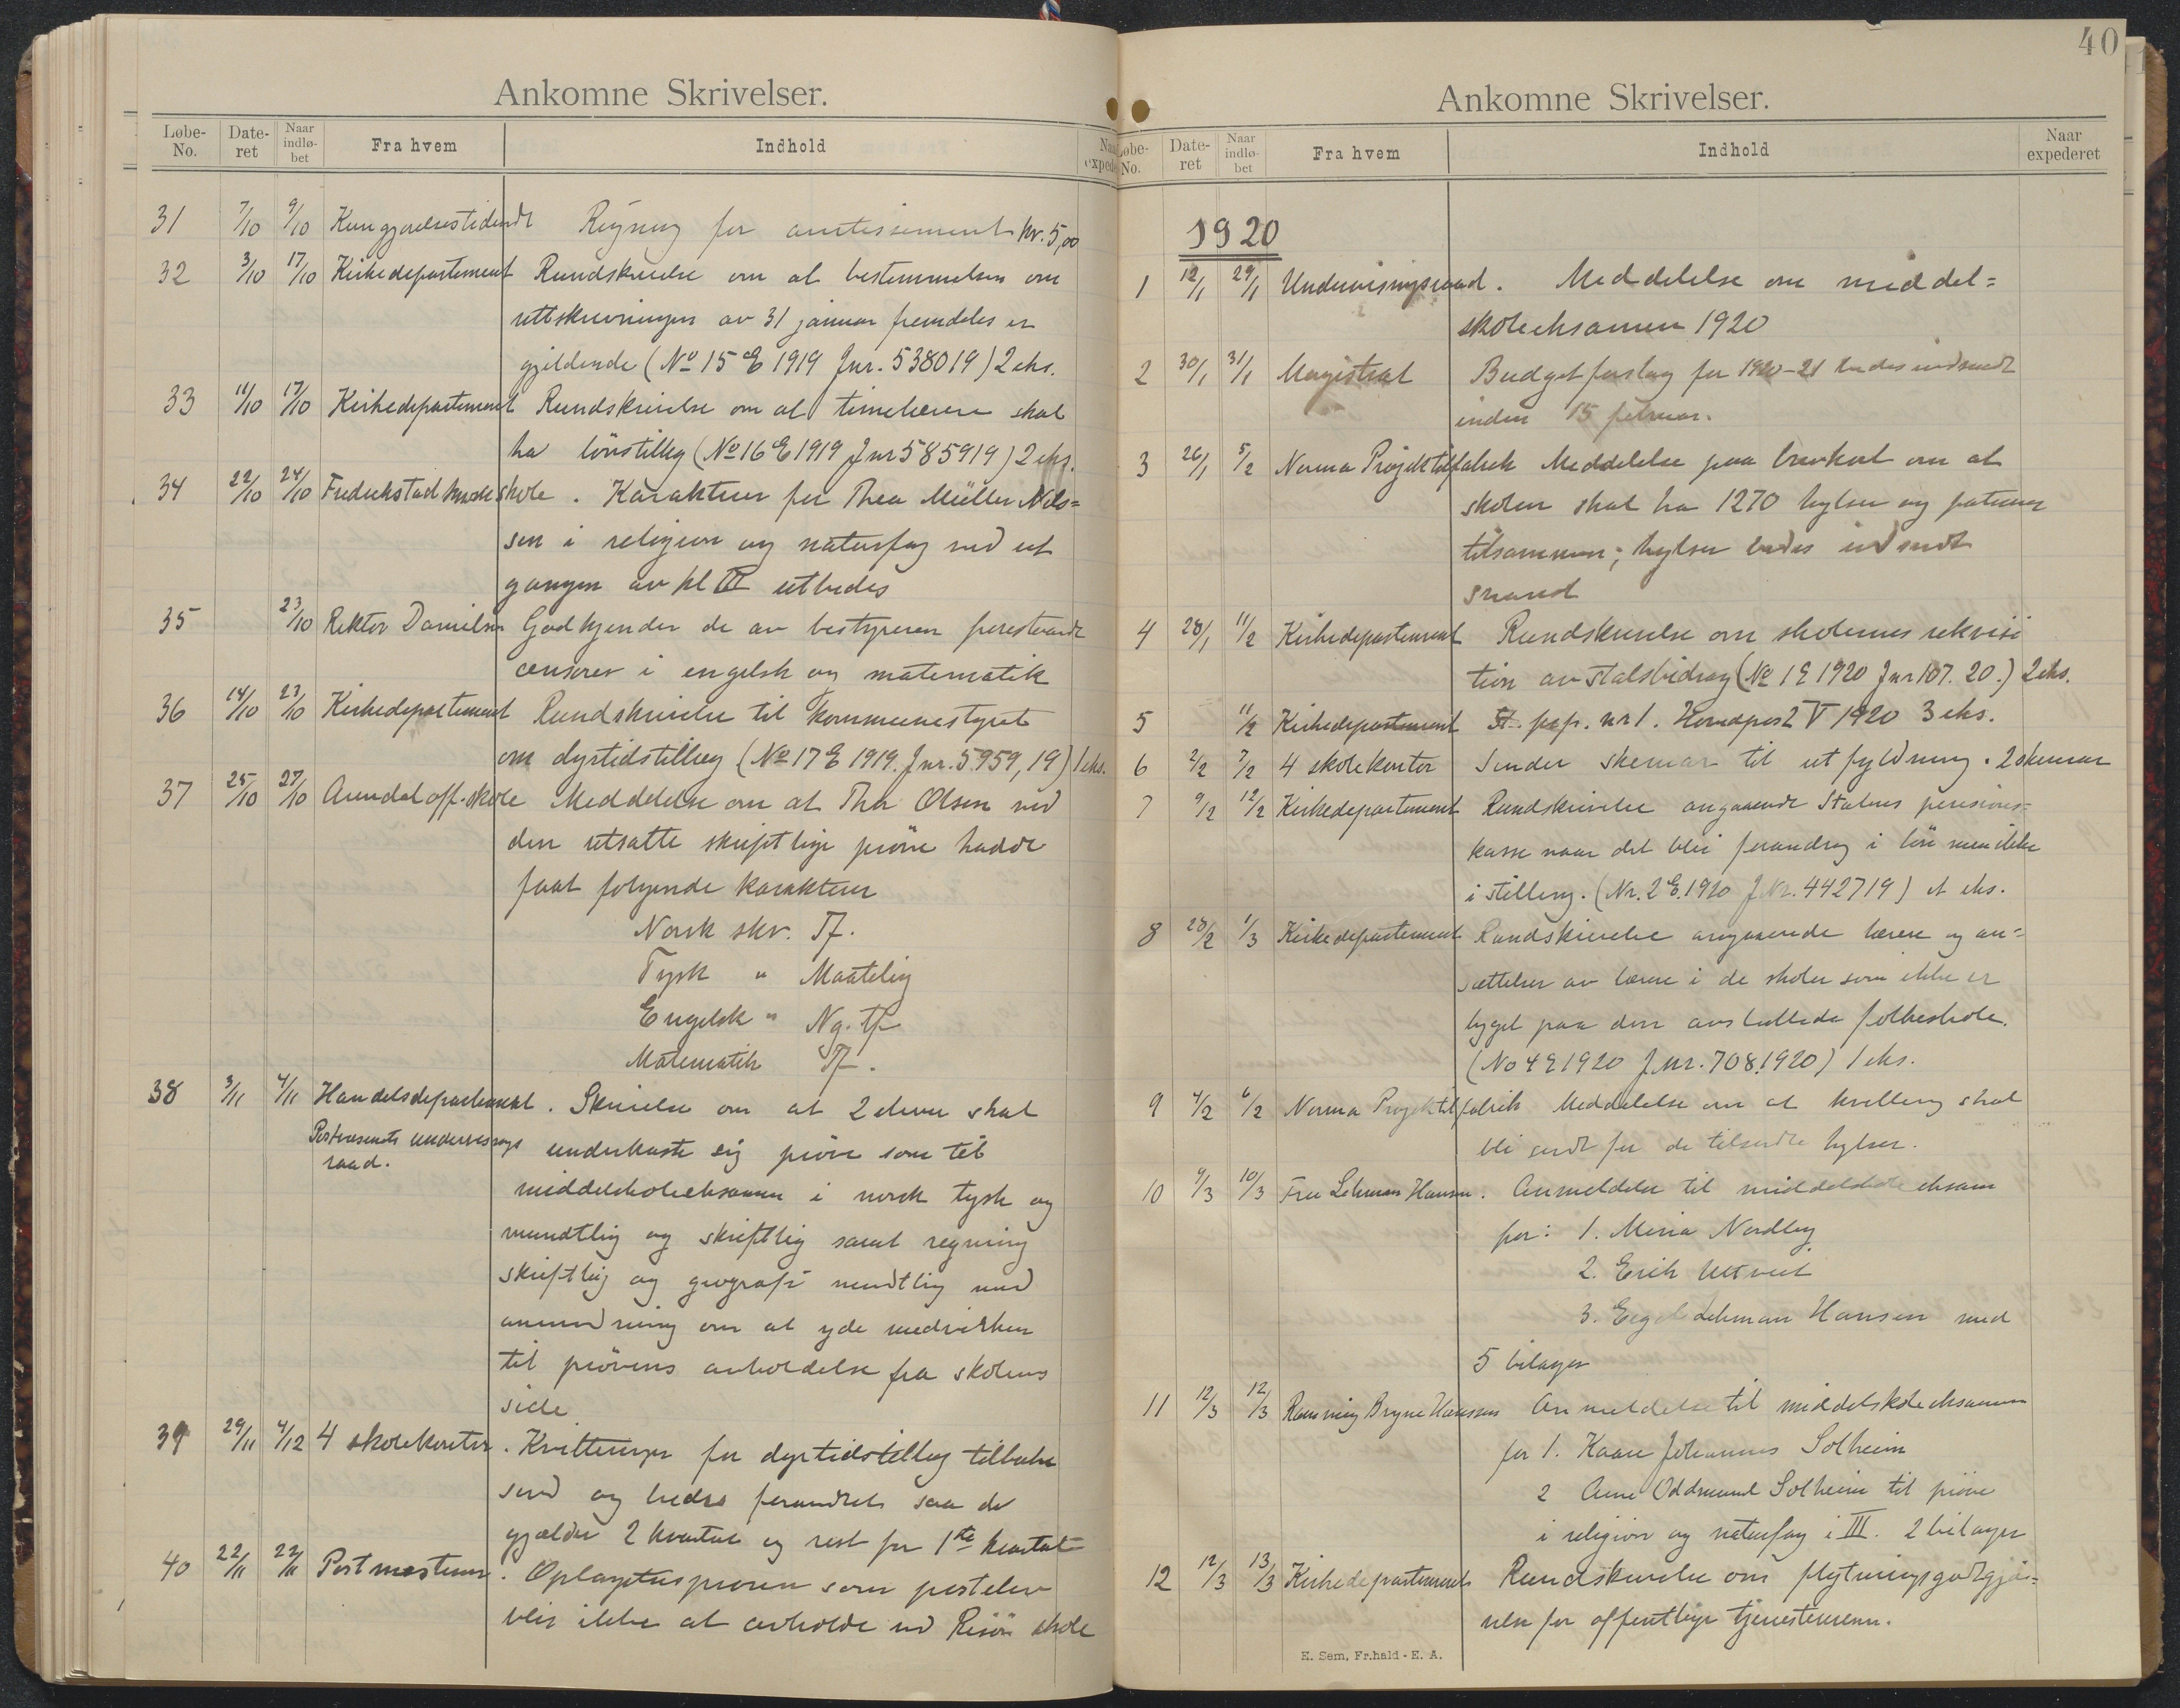 Ankomne Skrivelser.
Løbe-No. Dateret Naar indløbet Fra hvem Indhold
31 7/10 9/10 Kungjørelsestidende Regning for avertissement kr. 5,00
32 3/10 17/10 Kirkedepartement Rundskrivelse om at bestemmelsen om
rettskrivningen av 31 januar fremdeles er
gjeldende (No 15 E 1919 Jnr. 538019) 2 eks.
33 11/10 17/10 Kirkedepartement Rundskrivelse om at timelærere skal
ha lønstilleg (No 16 E 1919 Jnr 585919) 2 eks.
34 22/10 24/10 Fredrikstad skole. Karakterer for Thea Müller Nils=
sen i religion og naturfag ved ut
gangen av kl III utbedes
35 23/10 Rektor Danielsen Godkjender de av bestyreren foreslaaede
censorer i engelsk og matematik
36 14/10 23/10 Kirkedepartement Rundskrivelse til kommunestyret
om dyrtidstilleg (No 17 E 1919. Jnr. 5959,19) 1 eks.
37 25/10 27/10 Arendal off. skole Meddelelse om at Thor Olsen ved
den utsatte skriftlige prøve hadde
faat følgende karakterer
Norsk skr. Tf.
Tysk " Maatelig
Engelsk " Ng. tf
Matematik Tf.
38 3/11 4/11 Handelsdepartement. Skrivelse om at 2 elever skal
Postvæsenets undervisnings underkaste sig prøve som til
raad.
middelskoleeksamen i norsk tysk og
mundtlig og skriftlig samt regning
skriftlig og geografi mundtlig med
anmodning om at yde medvirken
til prøvens avholdelse fra skolens
side
39 29/11 4/12 4 skolekontor. Kvitteringer for dyrtidstilleg tilbake
send og bedes forandret saa de
gjælder 2 kvartal og rest for 1ste kvartal
40 22/11 22/11 Postmesteren. Optagelsesprøven som postelev
blir ikke at avholde ved Risør skole
40
Ankomne Skrivelser.
Løbe-No. Dateret Naar indløbet Fra hvem Indhold Naar expederet
1920
1 12/1 29/1 Undervisningsraad. Meddelelse om middel=
skoleeksamen 1920
2 30/1 31/1 Magistrat Budgetforslag for 1920-21 bedes indsendt
inden 15 februar.
3 26/1 5/2 Norma Projektilfabrik Meddelelse paa brevkort om at
skolen skal ha 1270 hylser og patroner
tilsammen; hylser bedes indsendt
snarest
4 28/1 11/2 Kirkedepartement Rundskrivelse om skolernes rekvisi
tion av statsbidrag (No 1 E 1920 Jnr 107. 20.) 2 eks.
5 11/2 Kirkedepartement St. prp. nr 1. Hovedpost V 1920 3 eks.
6 2/2 7/2 4 skolekontor Sender skemar til utfyldning. 2 skemar
7 9/2 12/2 Kirkedepartement Rundskrivelse angaaende Statens pensions=
kasse naar det blir forandring i løn men ikke
i stilling. (Nr. 2 E. 1920 J Nr. 442719) et eks.
8 28/2 1/3 Kirkedepartement Rundskrivelse angaaende lærere og an=
sættelser av lærere i de skoler som ikke er
bygget paa den avsluttede folkeskole.
(No 4 E 1920 J nr. 708.1920) 1 eks.
9 4/2 6/2 Norma Projektilfabrik Meddelelse om at kvittering skal
bli sendt for de tilsendte hylser.
10 9/3 10/3 Fru Lehman Hansen. Anmeldelse til middelskoleeksam
for: 1. Mina Nordby
2. Erik Uttveit
3. Lehman Hansen med
5 bilager
11 12/3 12/3 Bryne Hanssen Anmeldelse til middelskoleeksamen
for 1. Kaare Johannes Solheim
2 Arne Oddmund Solheim til prøve
i religion og naturfag i III. 2 bilager
12 12/3 13/3 Kirkedepartement Rundskrivelse om flytningsgodtgjø=
relse for offentlige tjenestemenn.
E. Sem, Fr.hald - E. A.